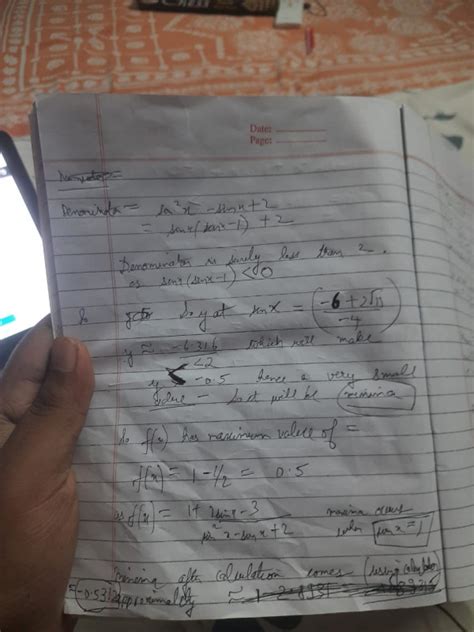 Date:
Page:
Denominator =
= sin²x - sinx + 2
= sinx(sinx-1) + 2
Denominator is surely less than 2.
as sinx(sinx-1) < 0
So y at sinx = (-6 + 2√11 / -4)
y ≈ -6.316 / <2 which will make
y -0.5 hence a very small
value - so it will be minima
So f(x) has maximum value of =
f(x) = 1 - 1/2 = 0.5
as f(x) = 1 + 2sinx - 3 / sin²x - sinx + 2 maxima occurs when sinx = 1
after calculation comes (using calculator)
≈ -0.531 approximately ≈